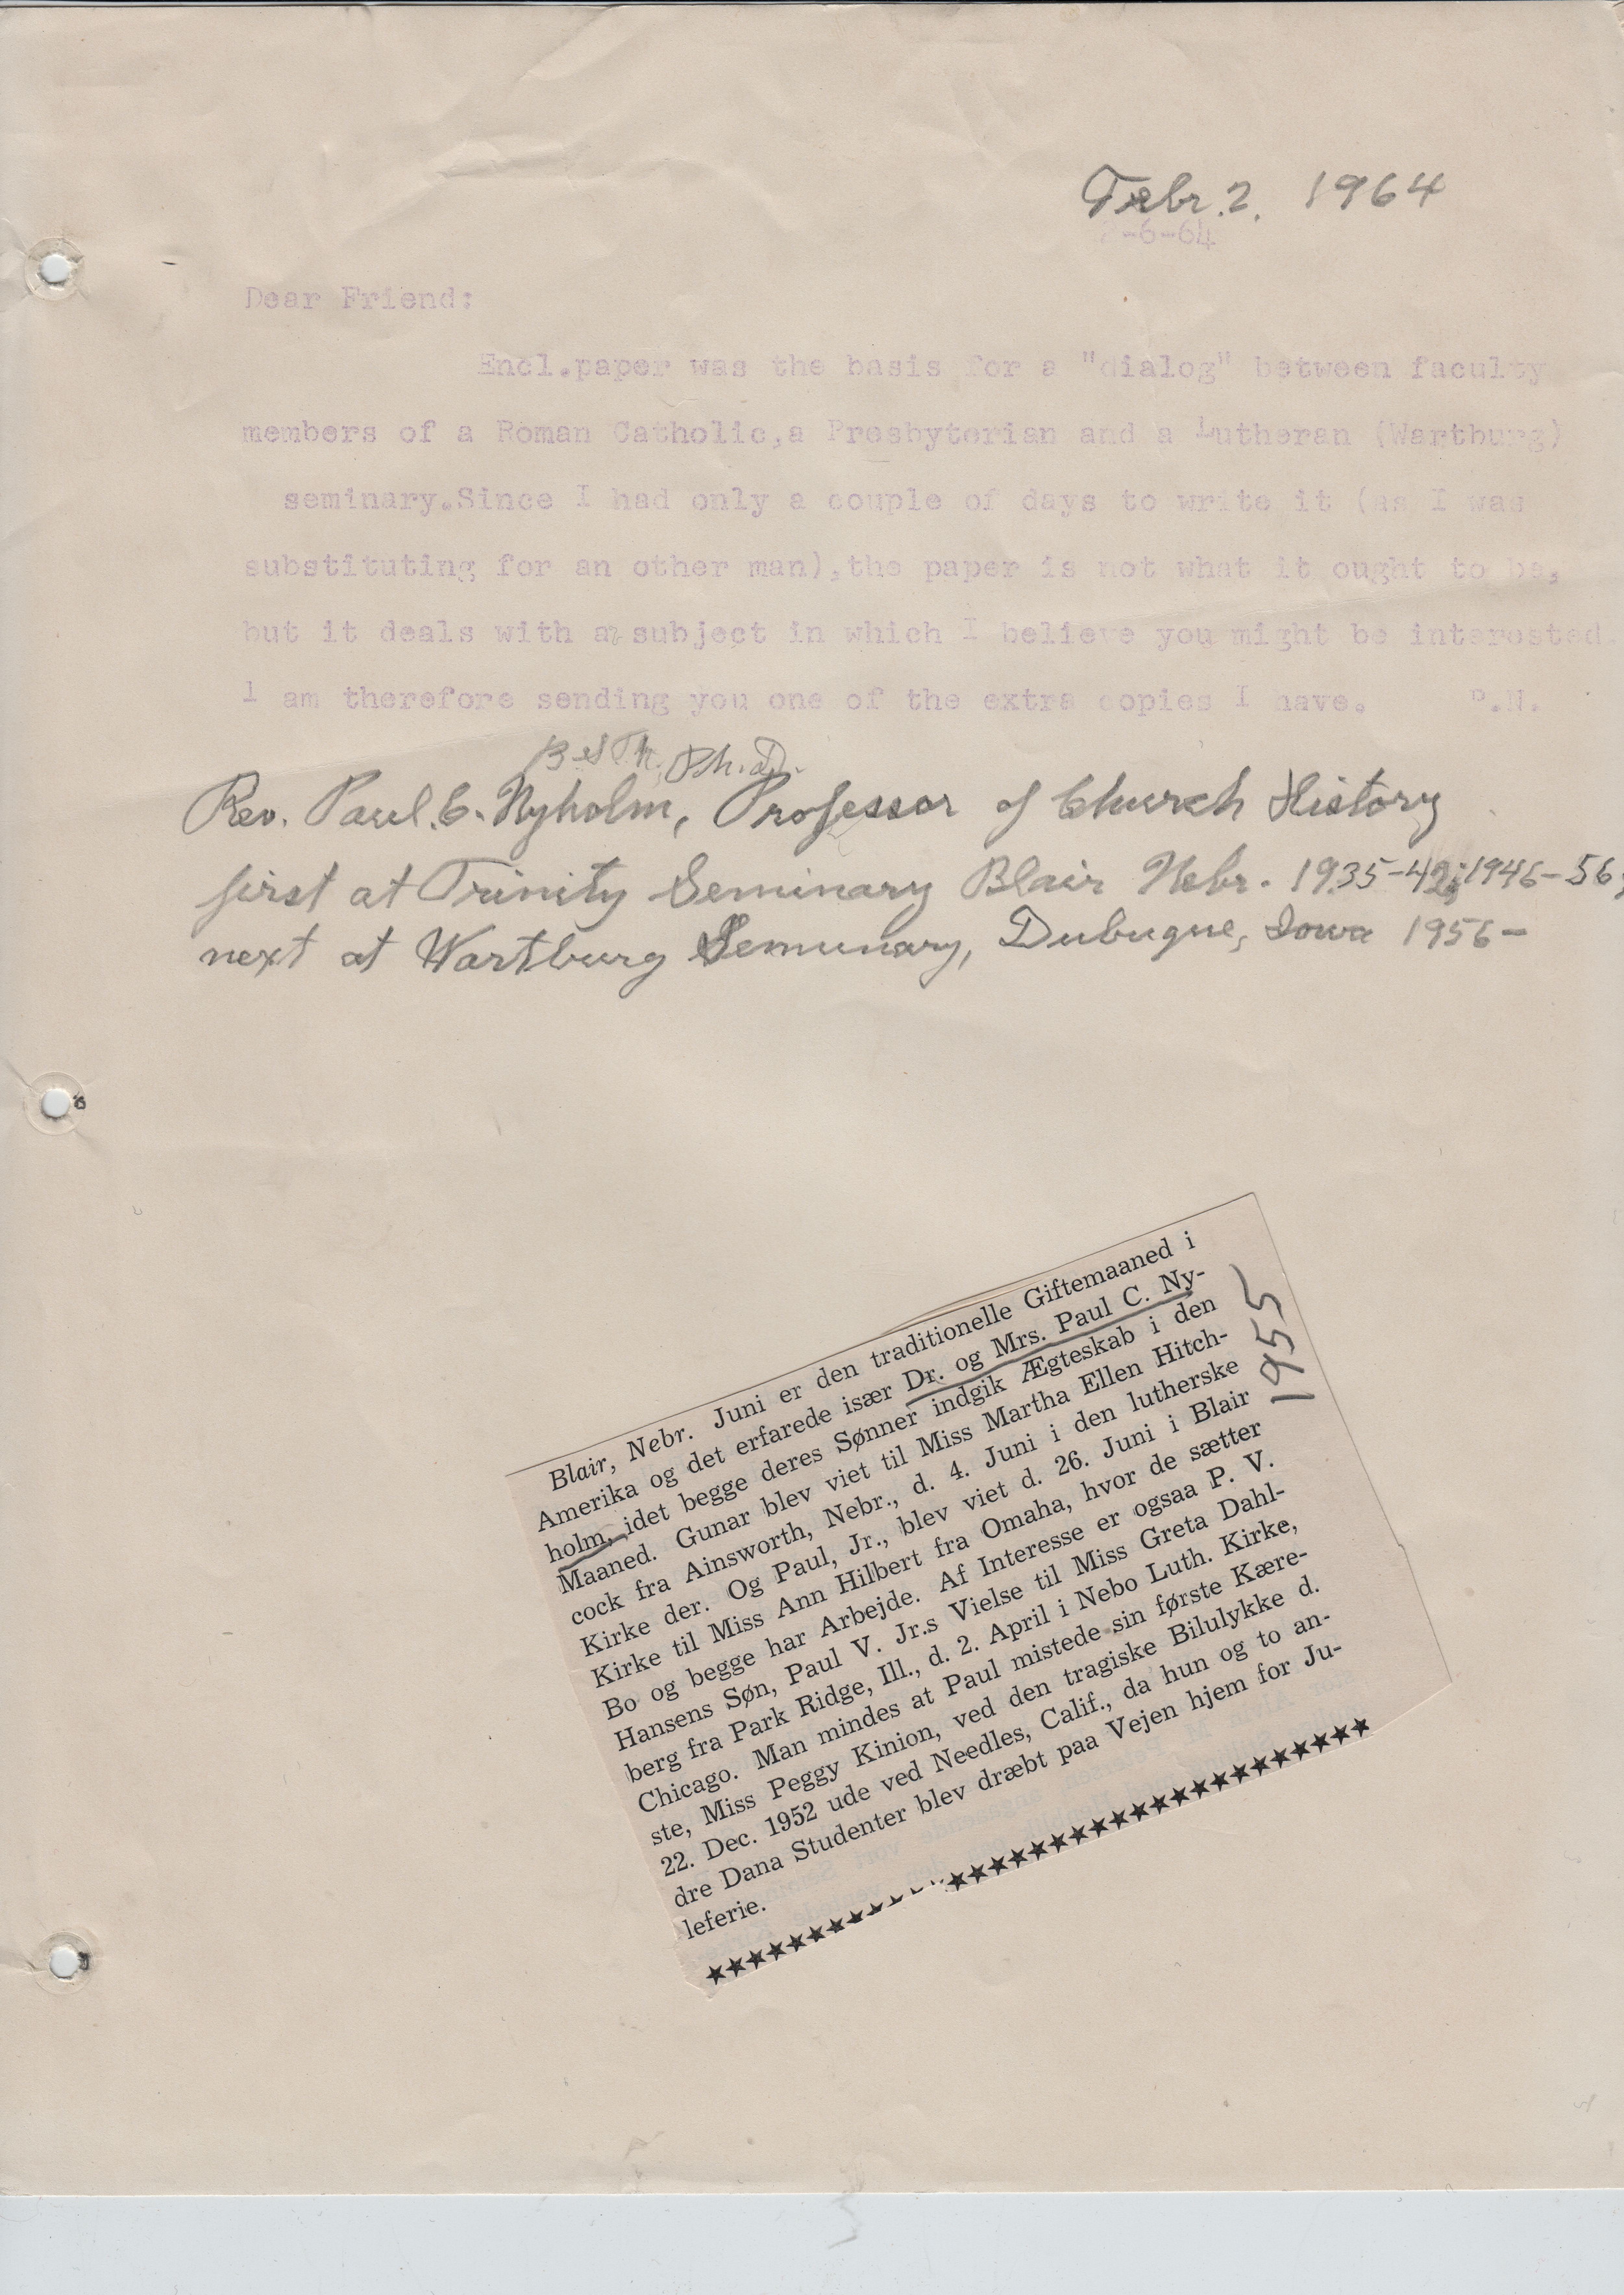 Febr. 2. 1964
2-6-64
Dear Friend:
Encl.paper was the basis for a "dialog" between faculty
members of a Roman Catholic,a Presbyterian and a Lutheran (Wartburg)
seminary.Since I had only a couple of days to write it (as I was
substituting for an other man),the paper is not what it ought to be,
but it deals with a subject in which I believe you might be interested.
I am therefore sending you one of the extra copies I have. P.N.
Ph.D.
Rev. Paul.C. Nyholm, Professor of Church History
first at Trinity Seminary Blair Nebr. 1935-42; 1946-56;
next at Wartburg Semunary, Dubuque, Iowa 1956-
Blair, Nebr. Juni er den traditionelle Giftemaaned i
Amerika og det erfarede især Dr. og Mrs. Paul C. Ny-
holm, idet begge deres Sønner indgik Ægteskab i den
Maaned. Gunar blev viet til Miss Martha Ellen Hitch-
cock fra Ainsworth, Nebr., d. 4. Juni i den lutherske
Kirke der. Og Paul, Jr., blev viet d. 26. Juni i Blair
Kirke til Miss Ann Hilbert fra Omaha, hvor de sætter
Bo og begge har Arbejde. Af Interesse er ogsaa P. V.
Hansens Søn, Paul V. Jr.s Vielse til Miss Greta Dahl-
berg fra Park Ridge, Ill., d. 2. April i Nebo Luth. Kirke,
Chicago. Man mindes at Paul mistede sin første Kære-
ste, Miss Peggy Kinion, ved den tragiske Bilulykke d.
22. Dec. 1952 ude ved Needles, Calif., da hun og to an-
dre Dana Studenter blev dræbt paa Vejen hjem for Ju-
leferie.
1955